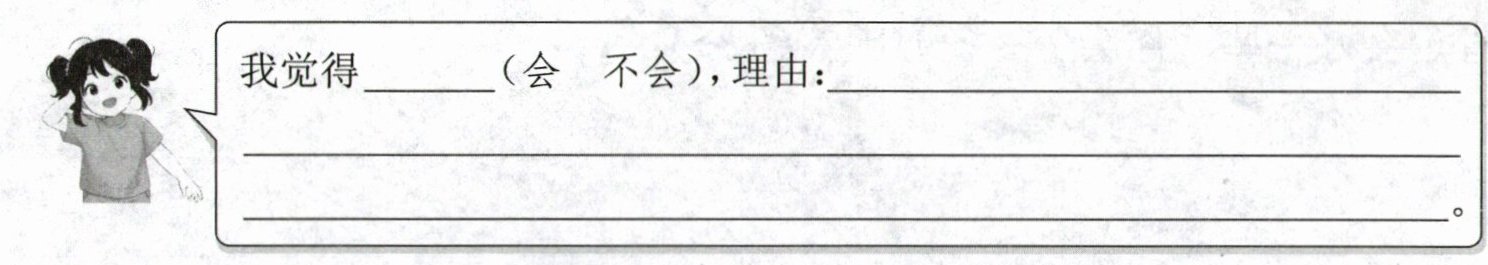 我觉得______(会　不会),理由:______
______
______。